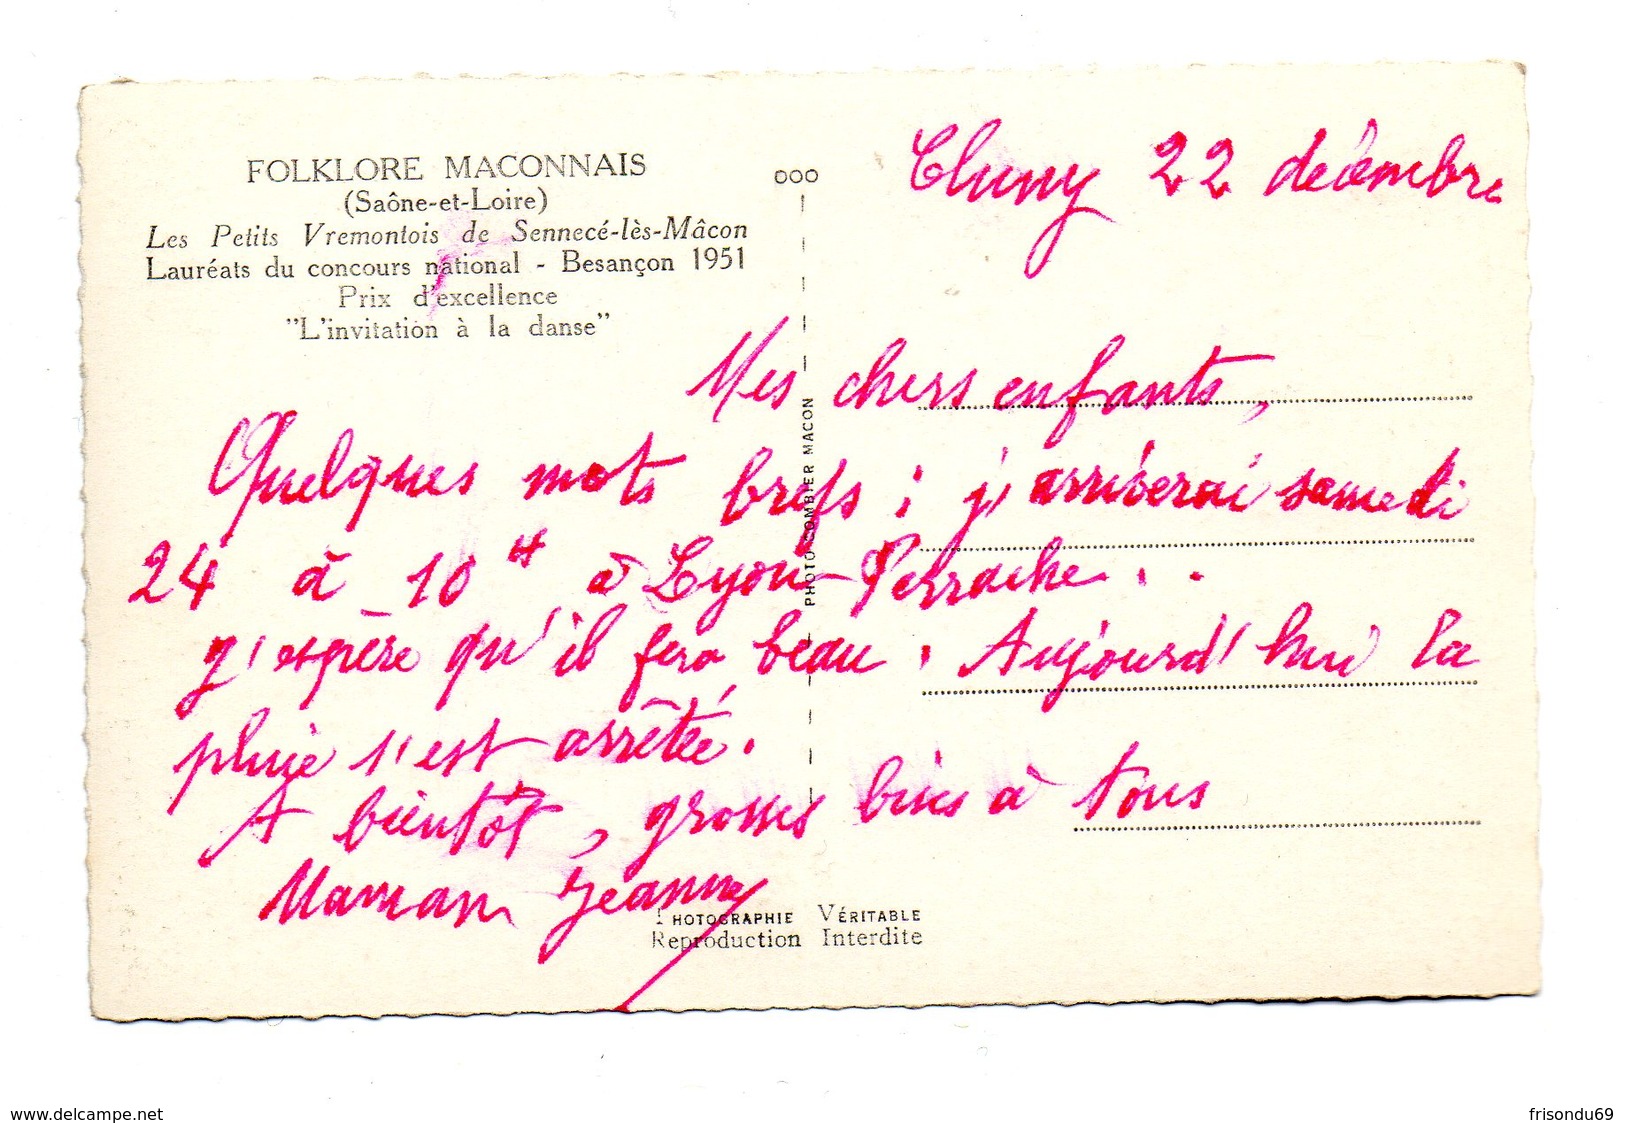 FOLKLORE MACONNAIS
(Saône-et-Loire)
Les Petits Vremontois de Sennecé-lès-Mâcon
Lauréats du concours national - Besançon 1951
Prix d'excellence
"L'invitation à la danse"
PHOTO COMBIER MACON
Cluny 22 décembre
Mes chers enfants,
Quelques mots brefs : j'arriverai samedi
24 à 10 H à Lyon-Perrache..
J'espère qu'il fera beau. Aujourd'hui la
pluie s'est arrêtée.
A bientôt, grosses bises à tous
Maman Jeanne
PHOTOGRAPHIE VÉRITABLE
Reproduction Interdite
www.delcampe.net
frisondu69